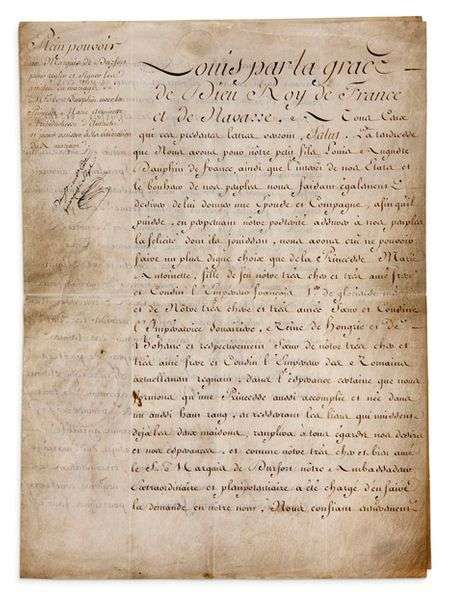 Plein pouvoir
au Marquis de Durfort
pour regler et signer les
articles du mariage
Dauphin avec la
Princesse Marie Antoinette
Louis par la grace
de Dieu Roy de France
et de Navarre, A Tous Ceux
qui ces presentes Lettres verront, Salut. La tendresse
que Nous avons pour nôtre petit fils Louis Auguste
Dauphin de France ainsi que l'interêt de nos Etats et
le bonheur de nos peuples nous faisant également
desirer de lui donner une Epouse et Compagne, afin qu'il
puisse, en perpetuant notre posterité assurer à nos peuples
la felicité dont ils jouissent, nous avons crû ne pouvoir
faire un plus digne choix que de la Princesse Marie
Antoinette, fille de feu notre très cher et très amé frere
et Cousin l'Empereur François 1er de glorieuse
et de Nôtre très chere et très amée Sœur et Cousine
l'Imperatrice douairiere, Reine de Hongrie et de
Boheme et respectivement Sœur de notre très cher et
très amé frere et Cousin l'Empereur des Romains
actuellement regnant, dans l'esperance certaine que nous
qu'une Princesse aussi accomplie et née dans
un aussi haut rang, en resserrant les liens qui unissent
deja les deux maisons, remplira à tous égards nos desirs
et nos esperances, et comme notre très cher et bien amé
le S. Marquis de Durfort nôtre Ambassadeur
Extraordinaire et plenipotentiaire a été chargé d'en faire
la demande en notre nom, Nous confiant entierement